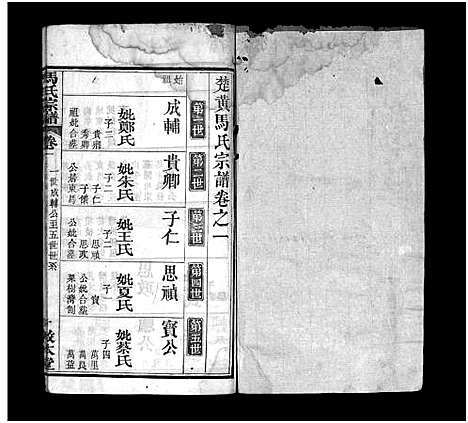 楚黃馬氏宗譜卷之一
第一世
第二世
第三世
第四世
第五世
始祖
成輔
貴卿
子仁
思禎
寳公
妣鄭氏
妣朱氏
妣王氏
妣夏氏
妣蔡氏
子二
貴卿
秀卿
祖妣合塟
子二
子仁
公居東馬
子二
思禎
思政
公妣合塟
子一
寳
公妣合塟
栗樹灣側
子四
萬里
萬良
萬益
馬氏宗譜
卷一
一世成輔公至五世世系
敦本堂